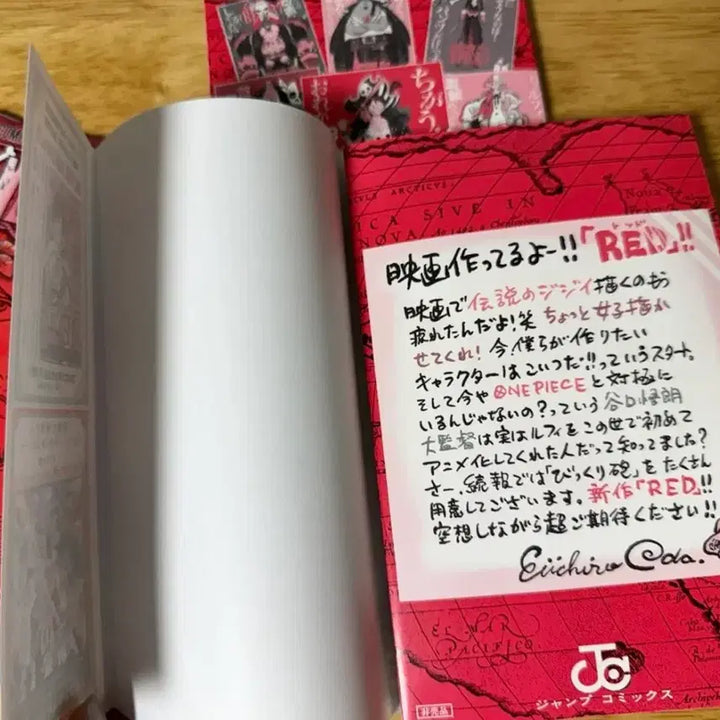 ちがう!
STYLE ARCTICVE
ICA SIVE IN
NOVA.
Noua
映画作ってるよー!!「RED」!!
映画で伝説のジジイ描くのもう
疲れたんだよ!笑 ちょっと女子描か
せてくれ! 今、僕らが作りたい
キャラクターはこいつだ!!っていうスタート。
そして今や ONE PIECE と対極に
いるんじゃないの?っていう 谷口悟朗
大監督は実はルフィをこの世で初めて
アニメ化してくれた人だって知ってました?
さー、続報では「びっくり砲」をたくさん
用意してございます。新作「RED」!!
空想しながら超ご期待ください!!
Eiichiro Oda.
EL MAR
PACIFICO
JC
ジャンプ コミックス
非売品